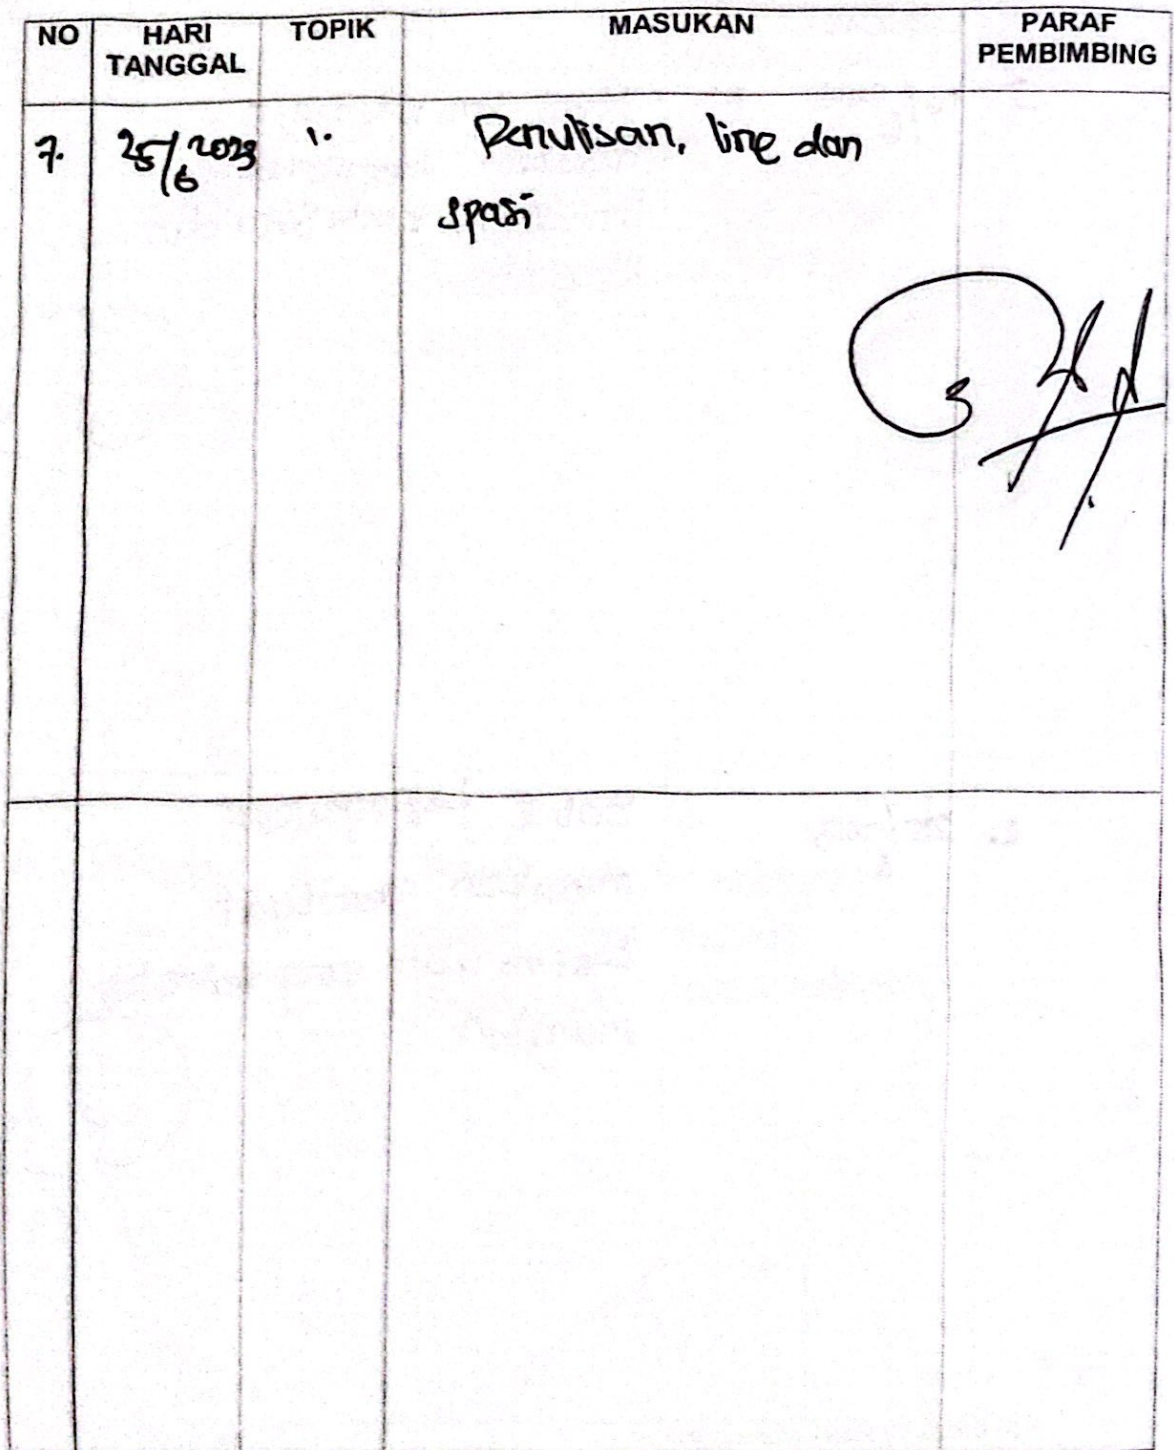 NO HARI TANGGAL TOPIK MASUKAN PARAF PEMBIMBING
7. 25/6 2023 1. Penulisan, line dan
spasi